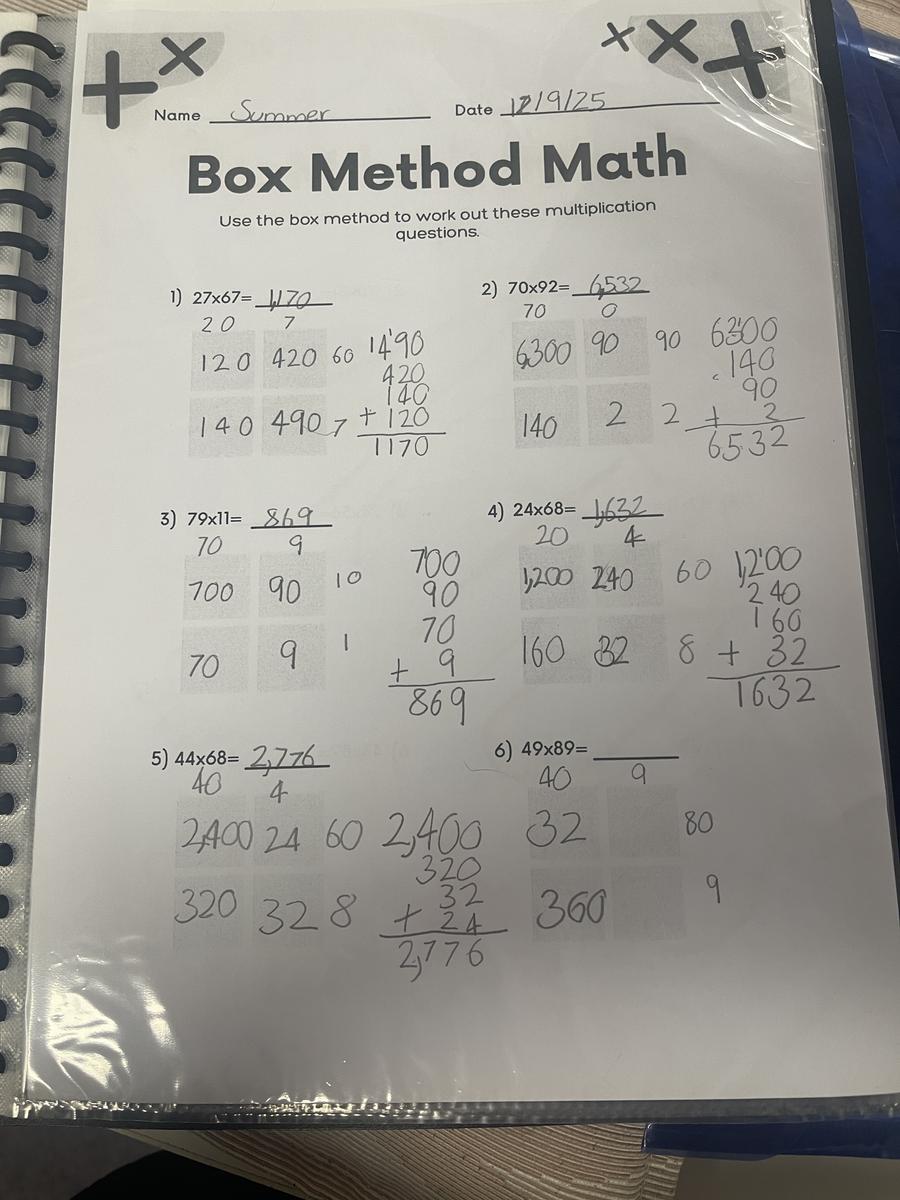 Name Summer Date 12/9/25
Box Method Math
Use the box method to work out these multiplication
questions.
1) 27x67= 1,170
20 7
120 420 60
140 490 7
1490
420
140
+ 120
1170
2) 70x92= 6,532
70 0
6,300 90 90
140 2 2
6300
140
90
+ 2
6532
3) 79x11= 869
70 9
700 90 10
70 9 1
700
90
70
+ 9
869
4) 24x68= 1,632
20 4
1,200 240 60
160 32 8
1,200
240
160
+ 32
1632
5) 44x68= 2,776
40 4
2,400 24 60
320 32 8
2,400
320
32
+ 24
2,776
6) 49x89=
40 9
32 80
360 9